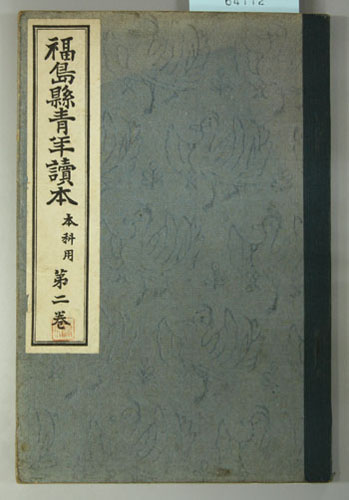 福島縣青年讀本
本科用
第二卷
64112